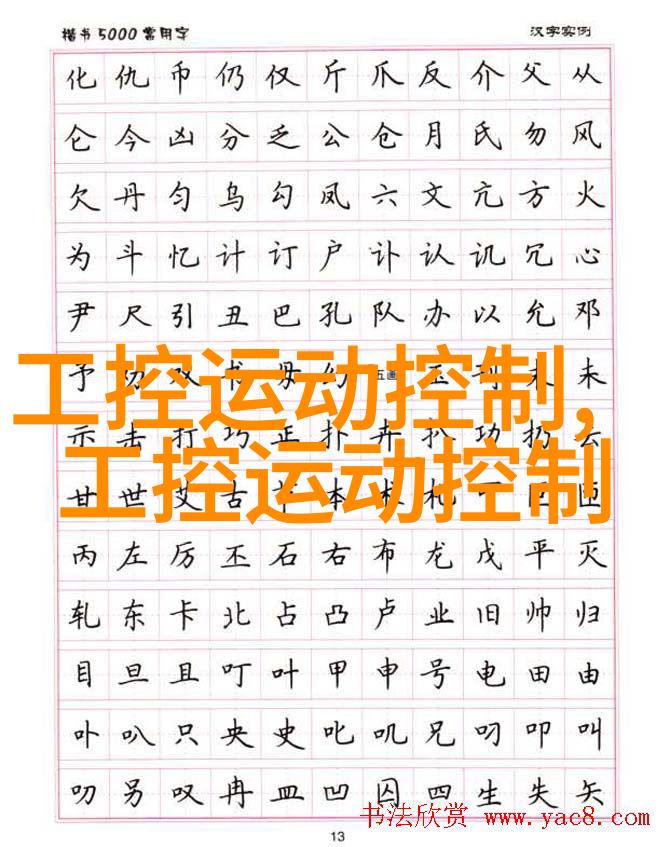 楷书5000常用字 汉字实例
化仇币仍仅斤爪反介父从
仑今凶分乏公仓月氏勿风
欠丹匀乌勾凤六文亢方火
为斗忆计订户讣认讥冗心
尹尺引丑巴孔队办以允邓
予 五画 未末
工控运动控制,
示击打巧正扑卉扒功扔去
工控运动控制
甘世艾古节本术札可叵匝
丙左厉丕石右布龙戊平灭
轧东卡北占凸卢业旧帅归
目旦且叮叶甲申号电田由
卟叭只央史叱叽兄叼叩叫
叨另叹冉皿凹囚四生失矢
书法欣赏 www.yac8.com
13